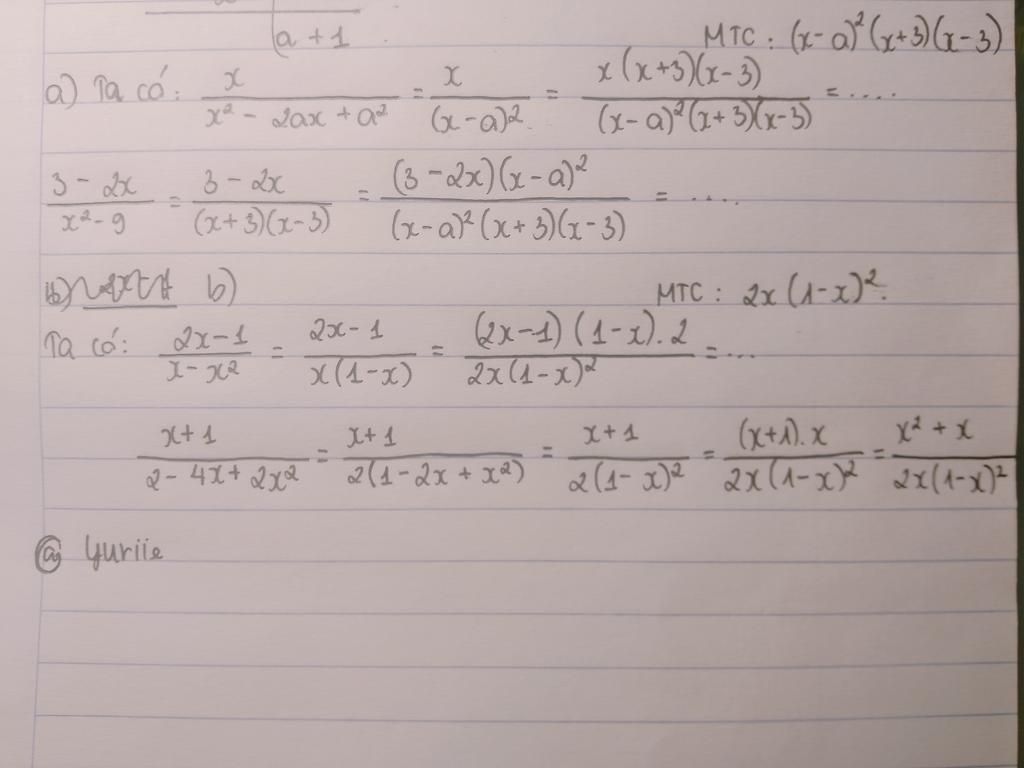 a + 1
MTC : (x - a)² (x+3)(x-3)
a) Ta có: x / (x² - 2ax + a²) = x / (x-a)² = x(x+3)(x-3) / (x-a)²(x+3)(x-3) = ....
(3 - 2x) / (x² - 9) = (3 - 2x) / (x+3)(x-3) = (3 - 2x)(x - a)² / (x-a)²(x+3)(x-3) = ....
b)
MTC : 2x(1-x)².
Ta có: (2x-1) / (x - x²) = (2x-1) / x(1-x) = (2x-1)(1-x).2 / 2x(1-x)² = ...
(x+1) / (2 - 4x + 2x²) = (x+1) / 2(1 - 2x + x²) = (x+1) / 2(1-x)² = (x+1).x / 2x(1-x)² = (x² + x) / 2x(1-x)²
@ Yuriie